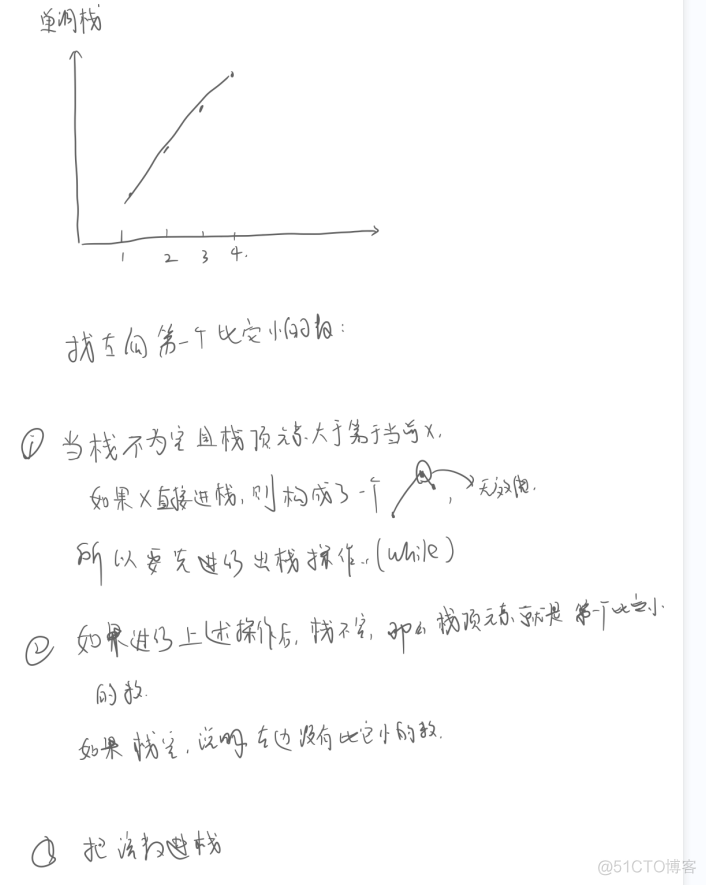 单调栈
1 2 3 4.
找左侧第一个比它小的数:
① 当栈不为空且栈顶元素大于等于当前x,
如果x直接进栈,则构成了一个 , 无效图.
所以要先进行出栈操作..(while)
② 如果进行上述操作后,栈不空,那么栈顶元素就是第一个比它小
的数.
如果栈空,说明左边没有比它小的数.
③ 把该数进栈
@51CTO博客